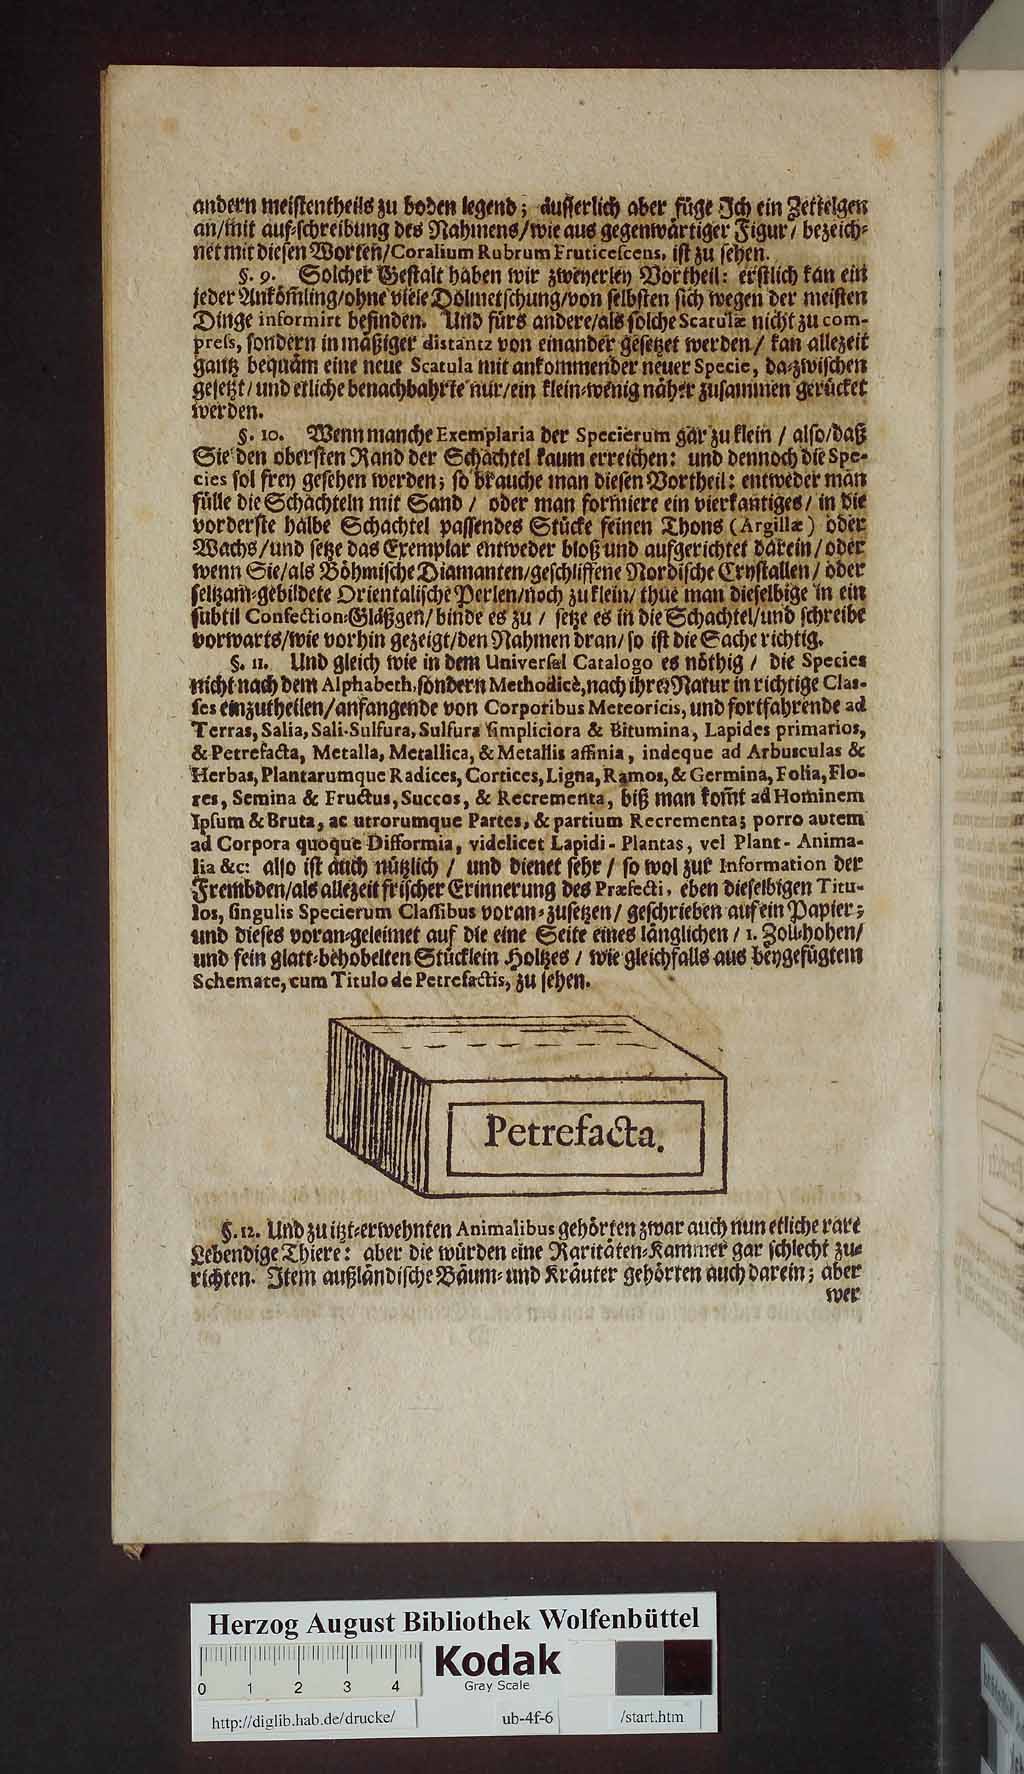 andern meistentheils zu boden legend; äusserlich aber füge Ich ein Zettelgen
an/mit auß-schreibung des Nahmens/wie aus gegenwärtiger Figur/ bezeich-
net mit diesen Worten/Coralium Rubrum Fruticescens, ist zu sehen.
§. 9. Solcher Gestalt haben wir zweyerley Vortheil: erstlich kan ein
jeder Anköm̃ling/ohne viele Dolmetschung/von selbsten sich wegen der meisten
Dinge informirt befinden. Und fürs andere/als solche Scatulæ nicht zu com-
press, sondern in mäßiger distantz von einander gesetzet werden/ kan allezeit
gantz bequäm eine neue Scatula mit ankommender neuer Specie, da-zwischen
gesetzt/und etliche benachbahrte nur/ein klein-wenig näher zusammen gerücket
werden.
§. 10. Wenn manche Exemplaria der Specierum gar zu klein / also/daß
Sie den obersten Rand der Schachtel kaum erreichen: und dennoch die Spe-
cies sol frey gesehen werden; so brauche man diesen Vortheil: entweder man
fülle die Schachteln mit Sand / oder man formiere ein vierkantiges/ in die
vorderste halbe Schachtel passendes Stücke feinen Thons (Argillæ) oder
Wachs/und setze das Exemplar entweder bloß und aufgerichtet darein/oder
wenn Sie/als Böhmische Diamanten/geschliffene Nordische Crystallen/ oder
seltzam-gebildete Orientalische Perlen/noch zu klein/ thue man dieselbige in ein
subtil Confection-Gläßgen/ binde es zu / setze es in die Schachtel/und schreibe
vorwarts/wie vorhin gezeigt/den Nahmen dran/ so ist die Sache richtig.
§. 11. Und gleich wie in dem Universal Catalogo es nöthig / die Species
nicht nach dem Alphabeth, sondern Methodicè, nach ihrer Natur in richtige Clas-
ses einzutheilen/anfangende von Corporibus Meteoricis, und fortfahrende ad
Terras, Salia, Sali-Sulfura, Sulfura simpliciora & Bitumina, Lapides primarios,
& Petrefacta, Metalla, Metallica, & Metallis affinia, indeque ad Arbusculas &
Herbas, Plantarumque Radices, Cortices, Ligna, Ramos, & Germina, Folia, Flo-
res, Semina & Fructus, Succos, & Recrementa, biß man kom̃t ad Hominem
Ipsum & Bruta, ac utrorumque Partes, & partium Recrementa; porro autem
ad Corpora quoque Difformia, videlicet Lapidi-Plantas, vel Plant-Anima-
lia &c: also ist auch nützlich / und dienet sehr / so wol zur Information der
Frembden/als allezeit frischer Erinnerung des Præfecti, eben dieselbigen Titu-
los, singulis Specierum Classibus voran-zusetzen/ geschrieben auf ein Papier;
und dieses voran-geleimet auf die eine Seite eines länglichen / 1. Zoll-hohen/
und fein glatt-behobelten Stücklein Holtzes / wie gleichfalls aus beygefügtem
Schemate, cum Titulo de Petrefactis, zu sehen.
Petrefacta.
§. 12. Und zu itzt-erwehnten Animalibus gehörten zwar auch nun etliche rare
Lebendige Thiere: aber die würden eine Raritäten-Kammer gar schlecht zu-
richten. Item außländische Bäum- und Kräuter gehörten auch darein; aber
wer
Herzog August Bibliothek Wolfenbüttel
Kodak
Gray Scale
0 1 2 3 4
http://diglib.hab.de/drucke/ ub-4f-6 /start.htm